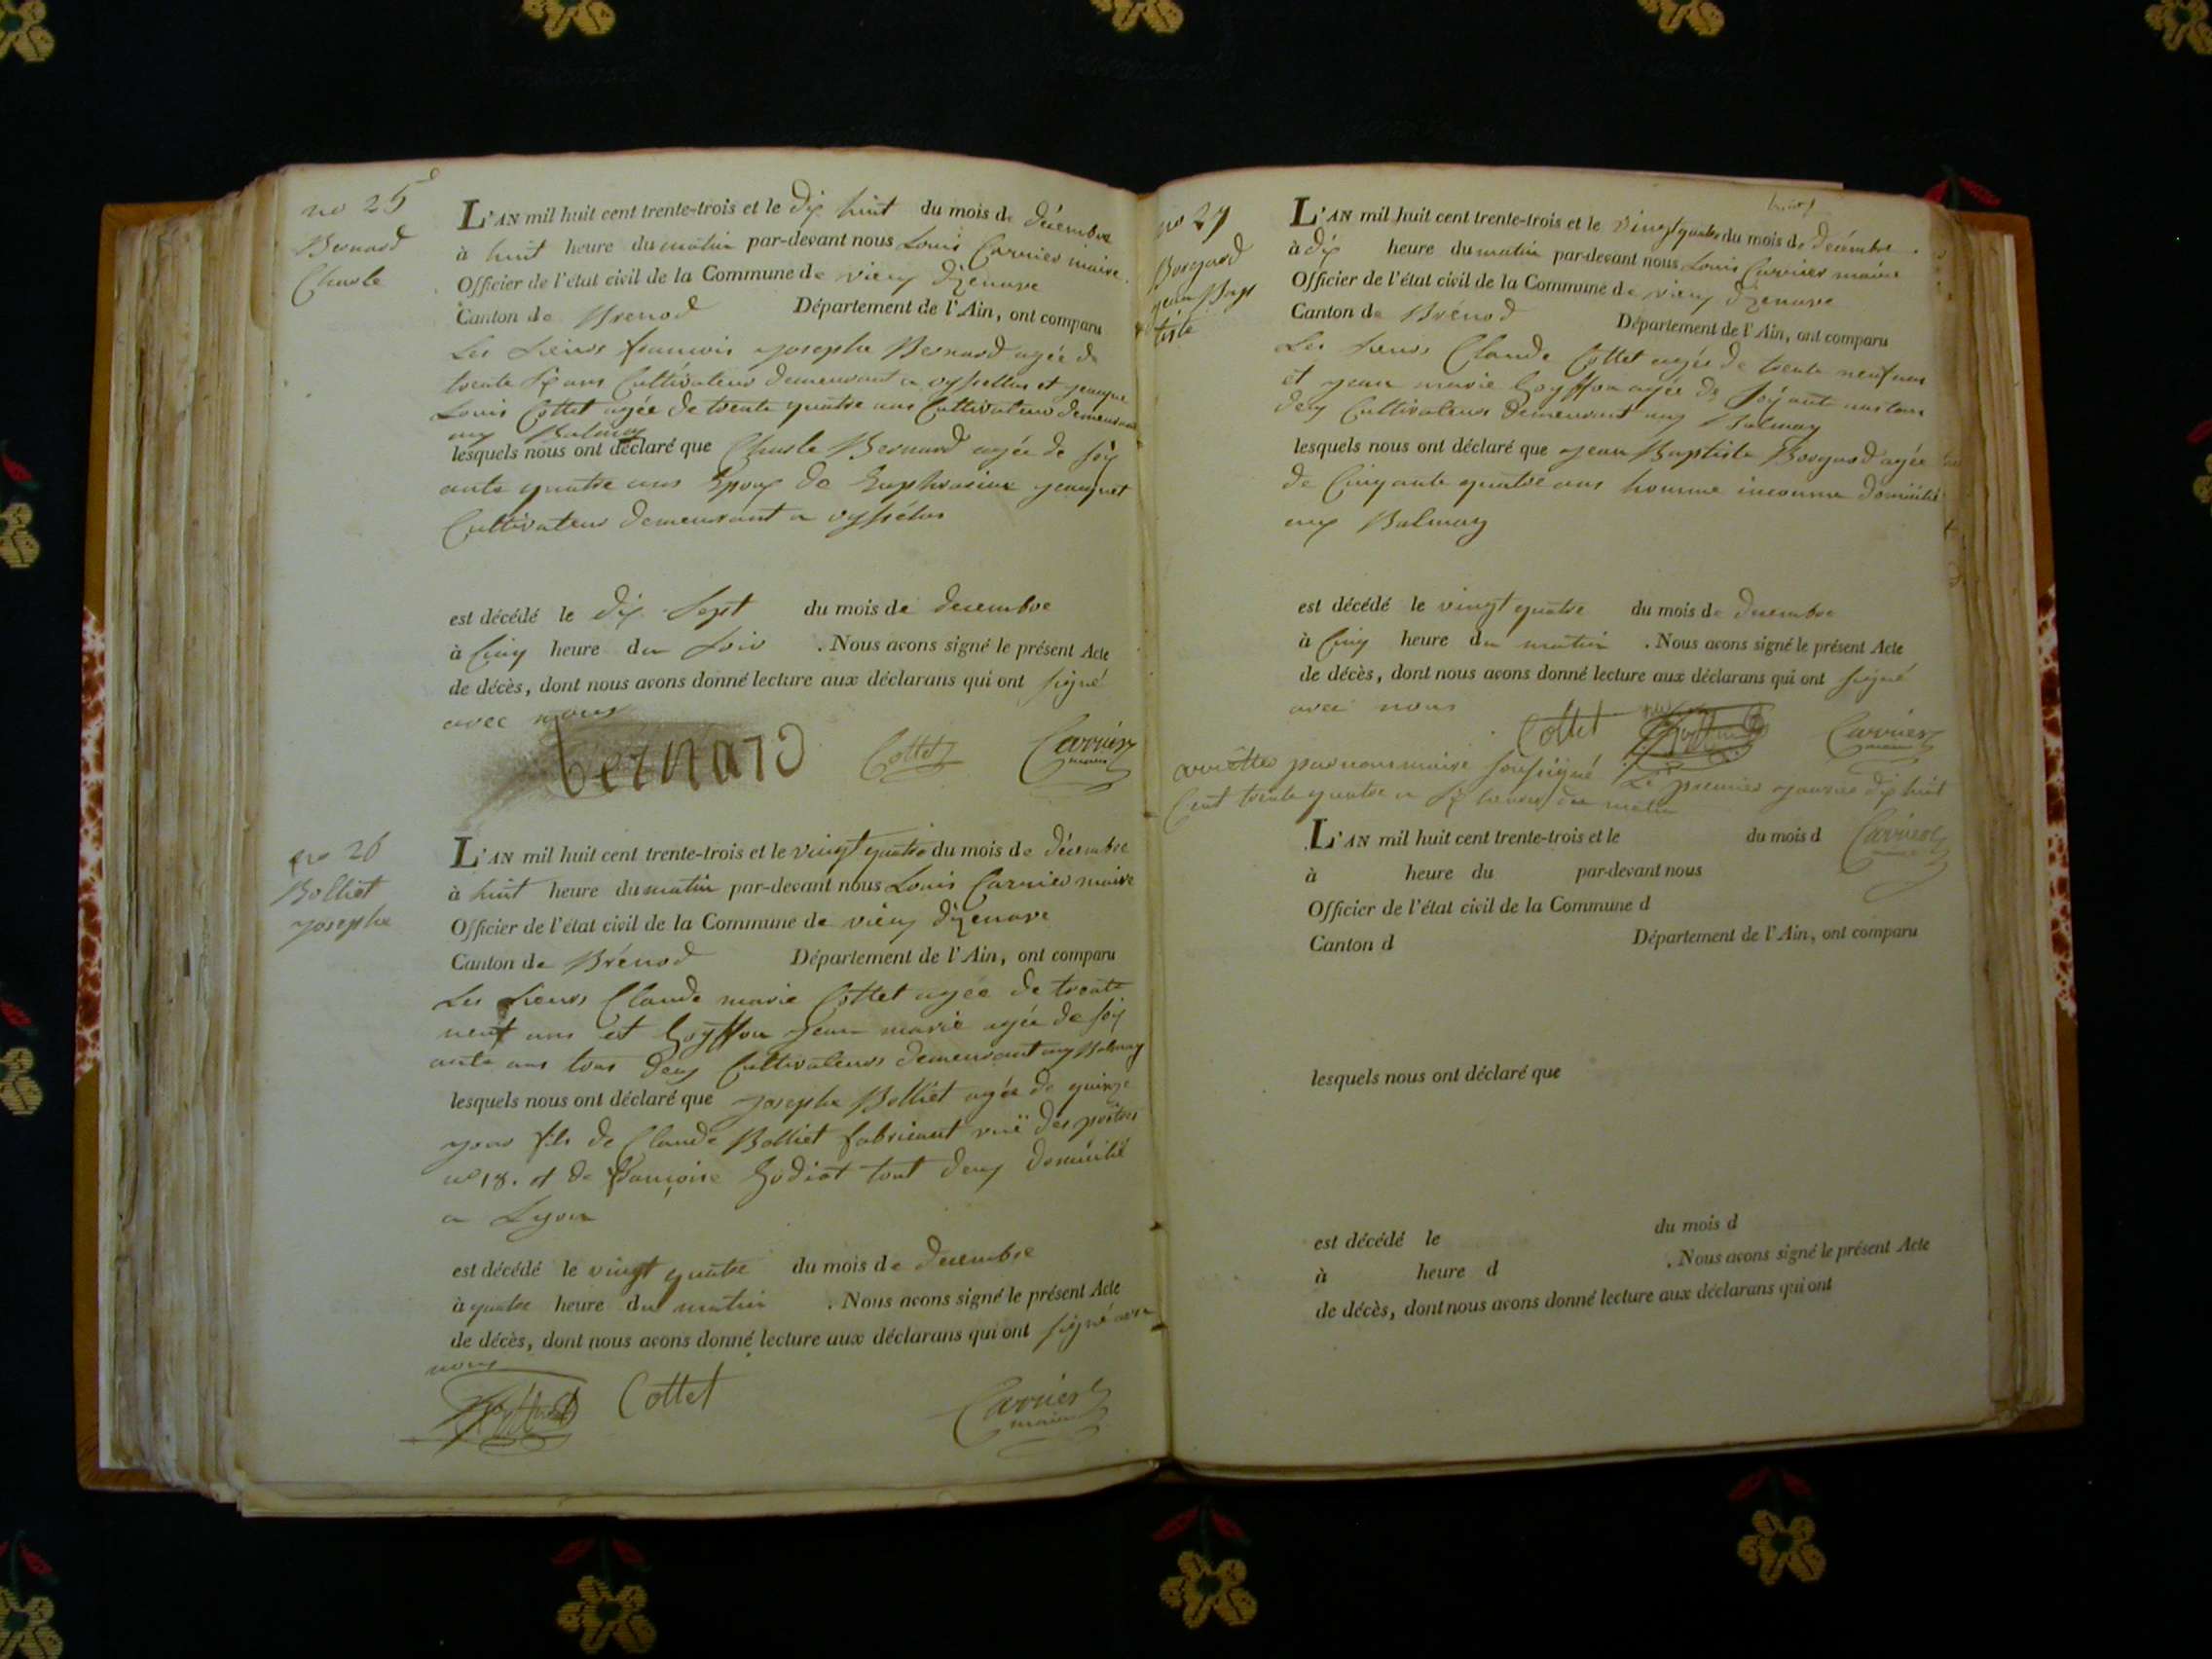 no 25
Bernard
Charle
L'AN mil huit cent trente-trois et le dix huit du mois de décembre
à huit heure du matin par-devant nous Louis Carrier maire
Officier de l'état civil de la Commune de vieux dizenave
Canton de Brenod Département de l'Ain, ont comparu
Les sieurs francois josephe Bernard agée de
trente six ans Cultivateur demeurant a vyssellas et
Louis Cottet agée de trente quatre ans Cultivateur demeurant
aux Balmay
lesquels nous ont déclaré que Charle Bernard agée de soix
ante quatre ans Epoux de Euphrosine
Cultivateur demeurant a
est décédé le dix Sept du mois de decembre
à Cinq heure du Soir . Nous avons signé le présent Acte
de décès, dont nous avons donné lecture aux déclarans qui ont signé
avec nous
bernard Cottet Carrier
maire
no 26
Bolliet
josephe
L'AN mil huit cent trente-trois et le vingt quatre du mois de décembre
à huit heure du matin par-devant nous Louis Carrier maire
Officier de l'état civil de la Commune de vieux dizenave
Canton de Brénod Département de l'Ain, ont comparu
Les Sieurs Claude marie Cottet agée de trente
neuf ans et Goyffon jean marie agée de soix
ante ans tous deux Cultivateurs demeurant aux Balmay
lesquels nous ont déclaré que josephe Bolliet agée de quinze
jour fils de Claude Bolliet fabricant ruë des
no 18. et de françoise Godiat tout deux domicilié
a Lyon
est décédé le vingt quatre du mois de decembre
à quatre heure du matin . Nous avons signé le présent Acte
de décès, dont nous avons donné lecture aux déclarans qui ont signé avec
nous
Cottet Carrier
maire
no 27
Borgard
jean Bapt
iste
L'AN mil huit cent trente-trois et le vingt quatre du mois de decémbre
à dix heure du matin par-devant nous Louis Carrier maire
Officier de l'état civil de la Commune de vieux dizenave
Canton de Brénod Département de l'Ain, ont comparu
Les sieurs Claude Cottet agée de trente neuf ans
et jean marie Goyffon agée de soixante ans tous
deux Cultivateurs demeurant aux Balmay
lesquels nous ont déclaré que jean Baptiste Borgard agée
de Cinquante quatre ans homme inconnu domicilié
aux Balmay
est décédé le vingt quatre du mois de decembre
à Cinq heure du matin . Nous avons signé le présent Acte
de décès, dont nous avons donné lecture aux déclarans qui ont signé
avec nous
Cottet Carrier
maire
arrêttée par nous maire soussigné Le premier janvier dix huit
Cent trente quatre a six heures du matin
Carrier
L'AN mil huit cent trente-trois et le du mois d
à heure du par-devant nous
Officier de l'état civil de la Commune d
Canton d Département de l'Ain, ont comparu
lesquels nous ont déclaré que
est décédé le du mois d
à heure d . Nous avons signé le présent Acte
de décès, dont nous avons donné lecture aux déclarans qui ont